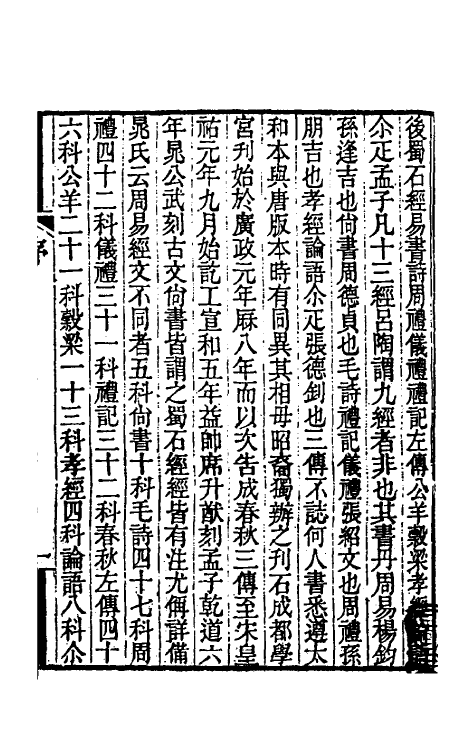 後蜀石經易書詩周禮儀禮禮記左傳公羊穀梁孝經
尒疋孟子凡十三經呂陶謂九經者非也其書丹周易楊鈞
孫逢吉也尙書周德貞也毛詩禮記儀禮張紹文也周禮孫
朋吉也孝經論語尒疋張德釗也三傳不誌何人書悉遵太
和本與唐版本時有同異其相毋昭裔獨辦之刊石成都學
宮刋始於廣政元年厤八年而以次吿成春秋三傳至宋皇
祐元年九月始訖工宣和五年益帥席升猷刻孟子乾道六
年晁公武刻古文尙書皆謂之蜀石經經皆有注尤偁詳備
晁氏云周易經文不同者五科尙書十科毛詩四十七科周
禮四十二科儀禮三十一科禮記三十二科春秋左傳四十
六科公羊二十一科穀梁一十三科孝經四科論語八科尒
序
一